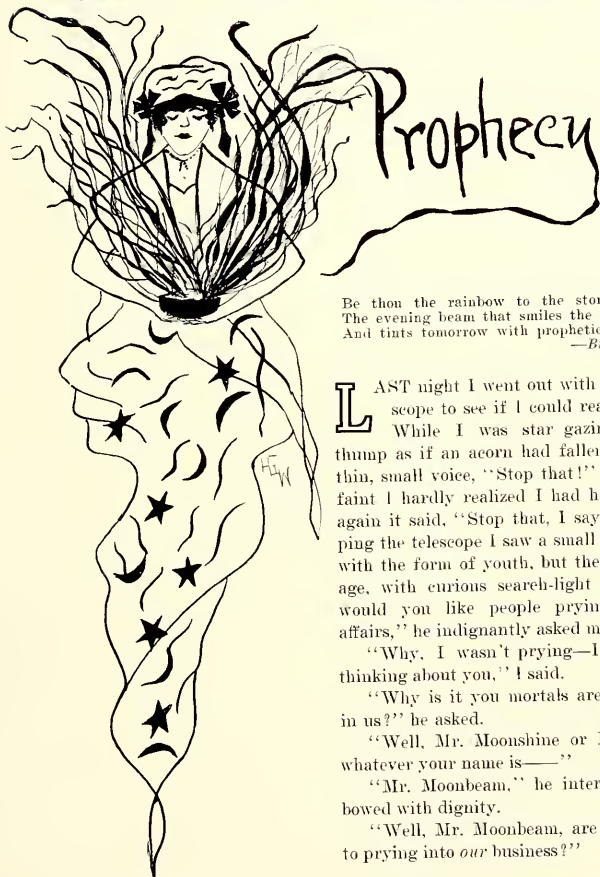 Prophecy
Be thou the rainbow to the
The evening beam that smiles the
And tints tomorrow with
LAST night I went out with
scope to see if I could
While I was star
thump as if an acorn had
thin, small voice, "Stop that!"
faint I hardly realized I had
again it said, "Stop that, I
ping the telescope I saw a small
with the form of youth, but the
age, with curious search-light
would you like people
affairs," he indignantly asked
"Why, I wasn't prying—I
thinking about you," I said.
"Why is it you mortals are
in us?" he asked.
"Well, Mr. Moonshine or
whatever your name is——"
"Mr. Moonbeam," he
bowed with dignity.
"Well, Mr. Moonbeam, are
to prying into our business?"